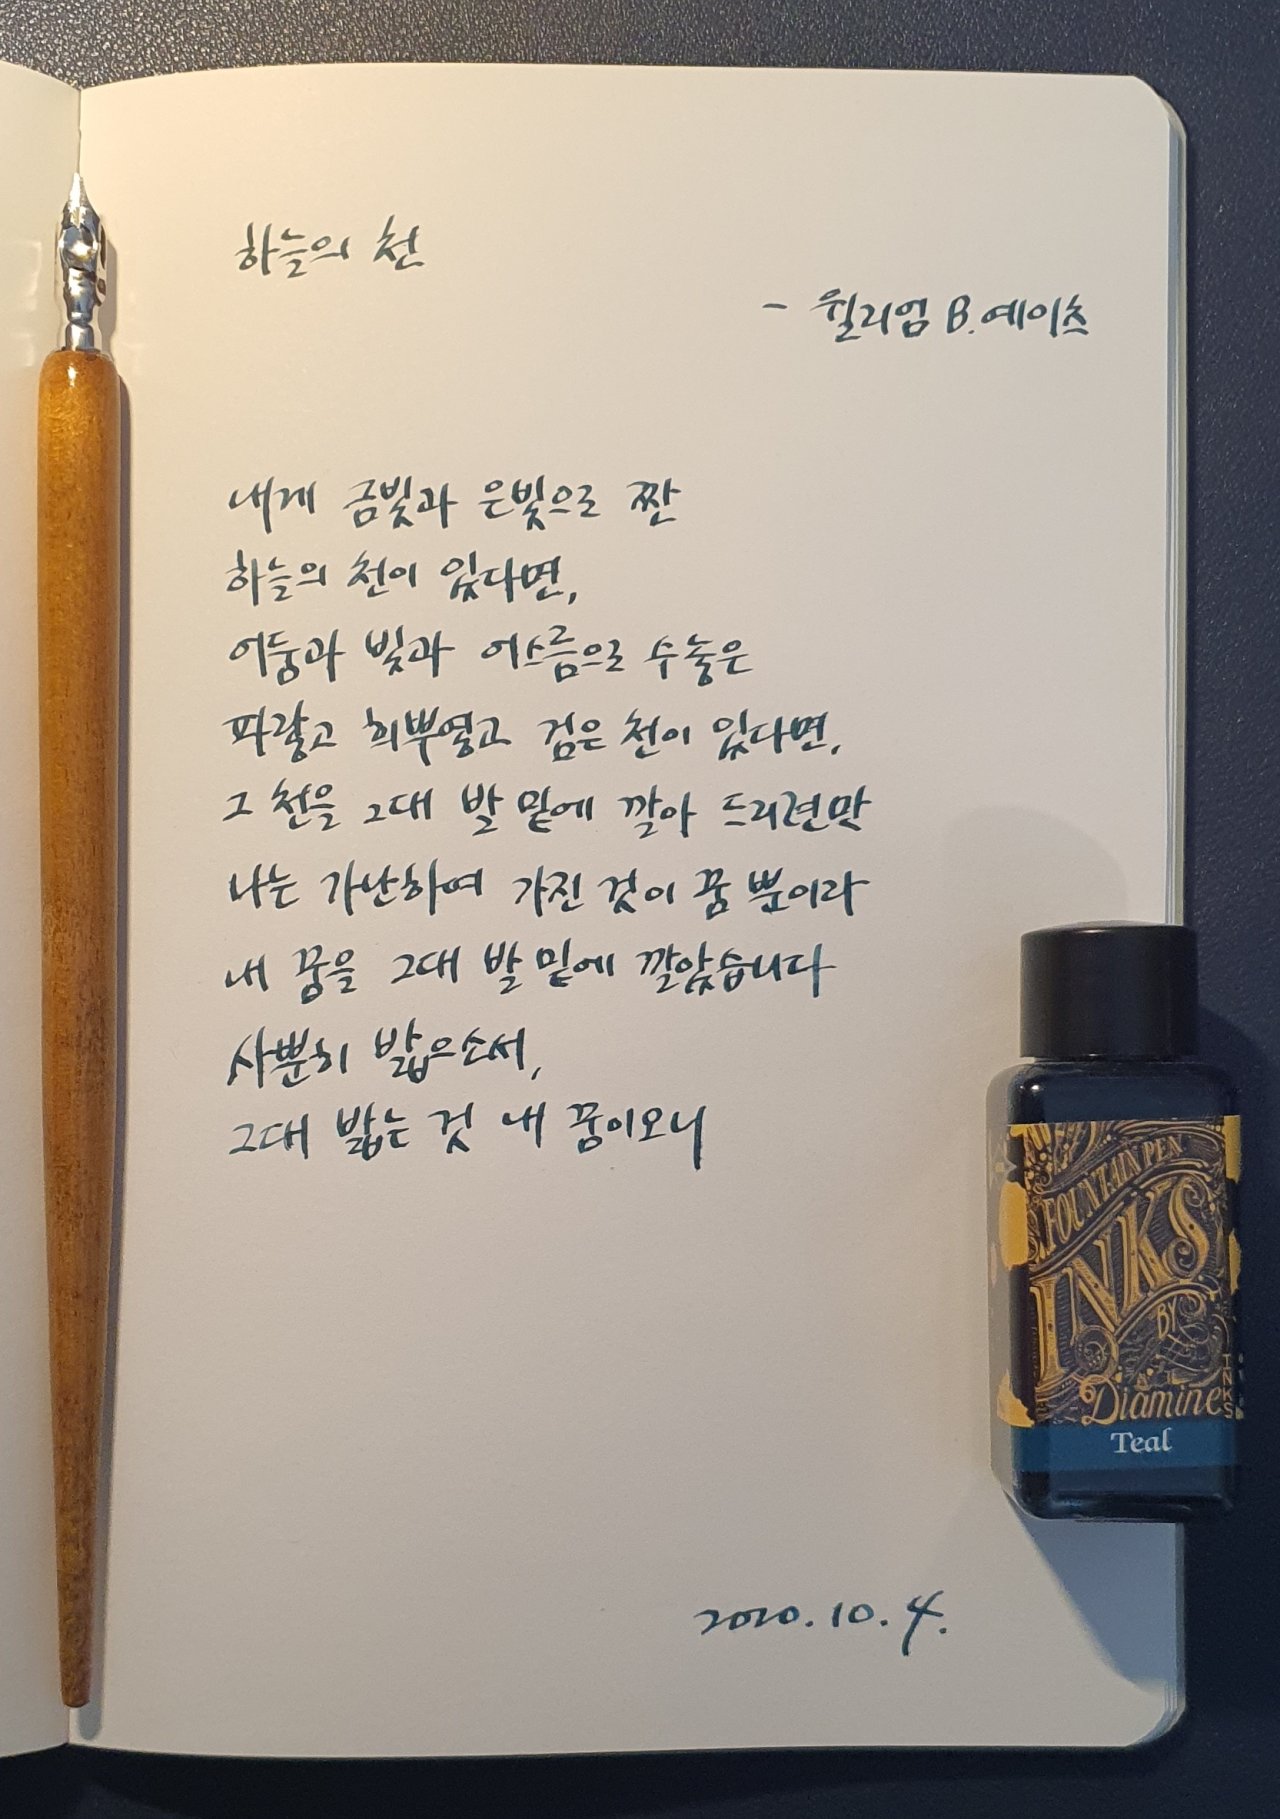 하늘의 천
- 윌리엄 B. 예이츠
내게 금빛과 은빛으로 짠
하늘의 천이 있다면,
어둠과 빛과 어스름으로 수놓은
파랗고 희뿌옇고 검은 천이 있다면,
그 천을 그대 발 밑에 깔아 드리련만
나는 가난하여 가진 것이 꿈 뿐이라
내 꿈을 그대 발 밑에 깔았습니다
사뿐히 밟으소서,
그대 밟는 것 내 꿈이오니
FOUNTAIN PEN
INKS
BY
Diamine
INKS
Teal
2020. 10. 4.